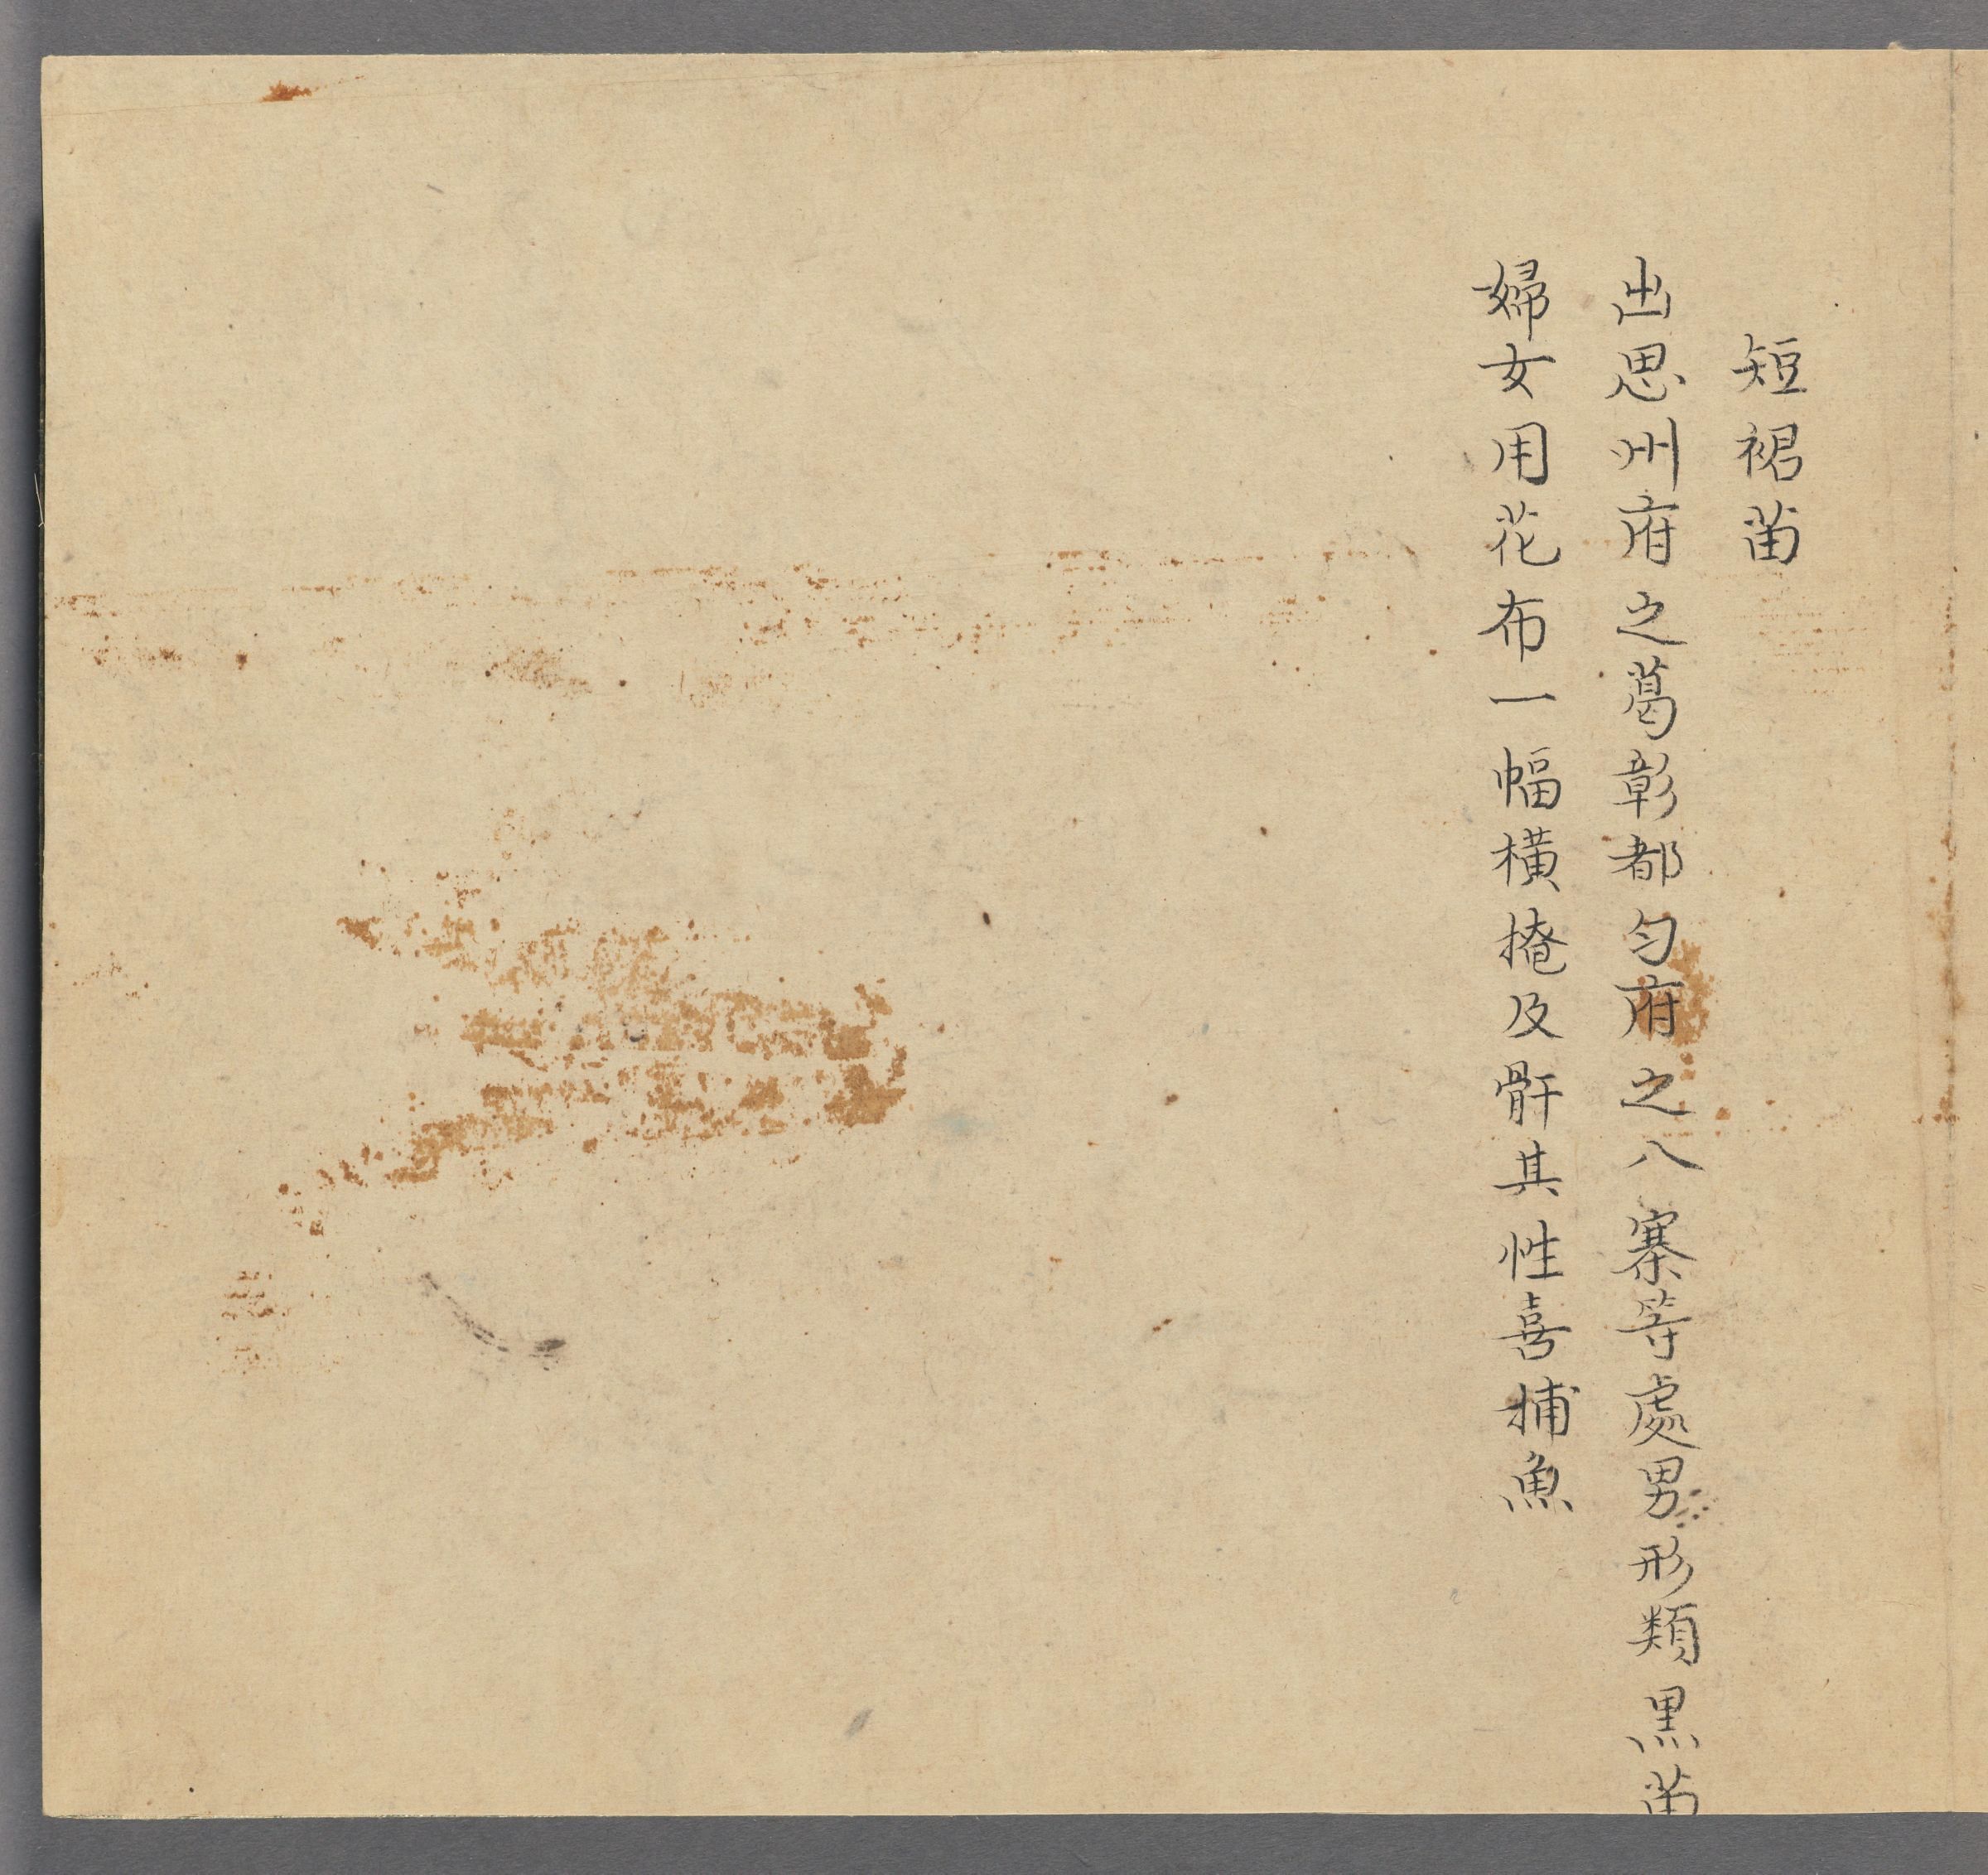 短裙苗
出思州府之葛彰都匀府之八寨等處男形類黑苗
婦女用花布一幅橫掩及骭其性喜捕魚